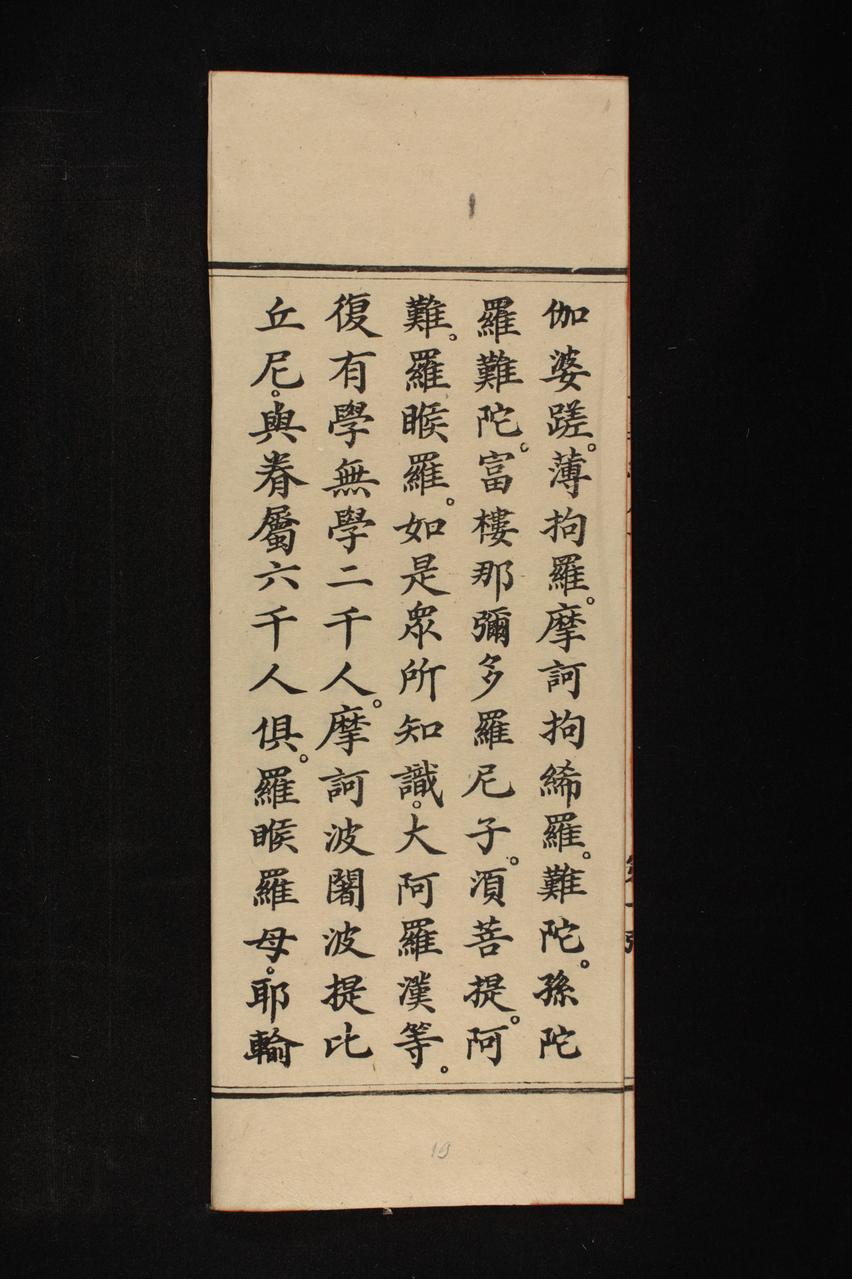 伽婆蹉。薄拘羅。摩訶拘絺羅。難陀。孫陀
羅難陀。富樓那彌多羅尼子。湏菩提。阿
難。羅睺羅。如是眾所知識。大阿羅漢等。
復有學無學二千人。摩訶波闍波提比
丘尼。與眷屬六千人俱。羅睺羅母。耶輸
19